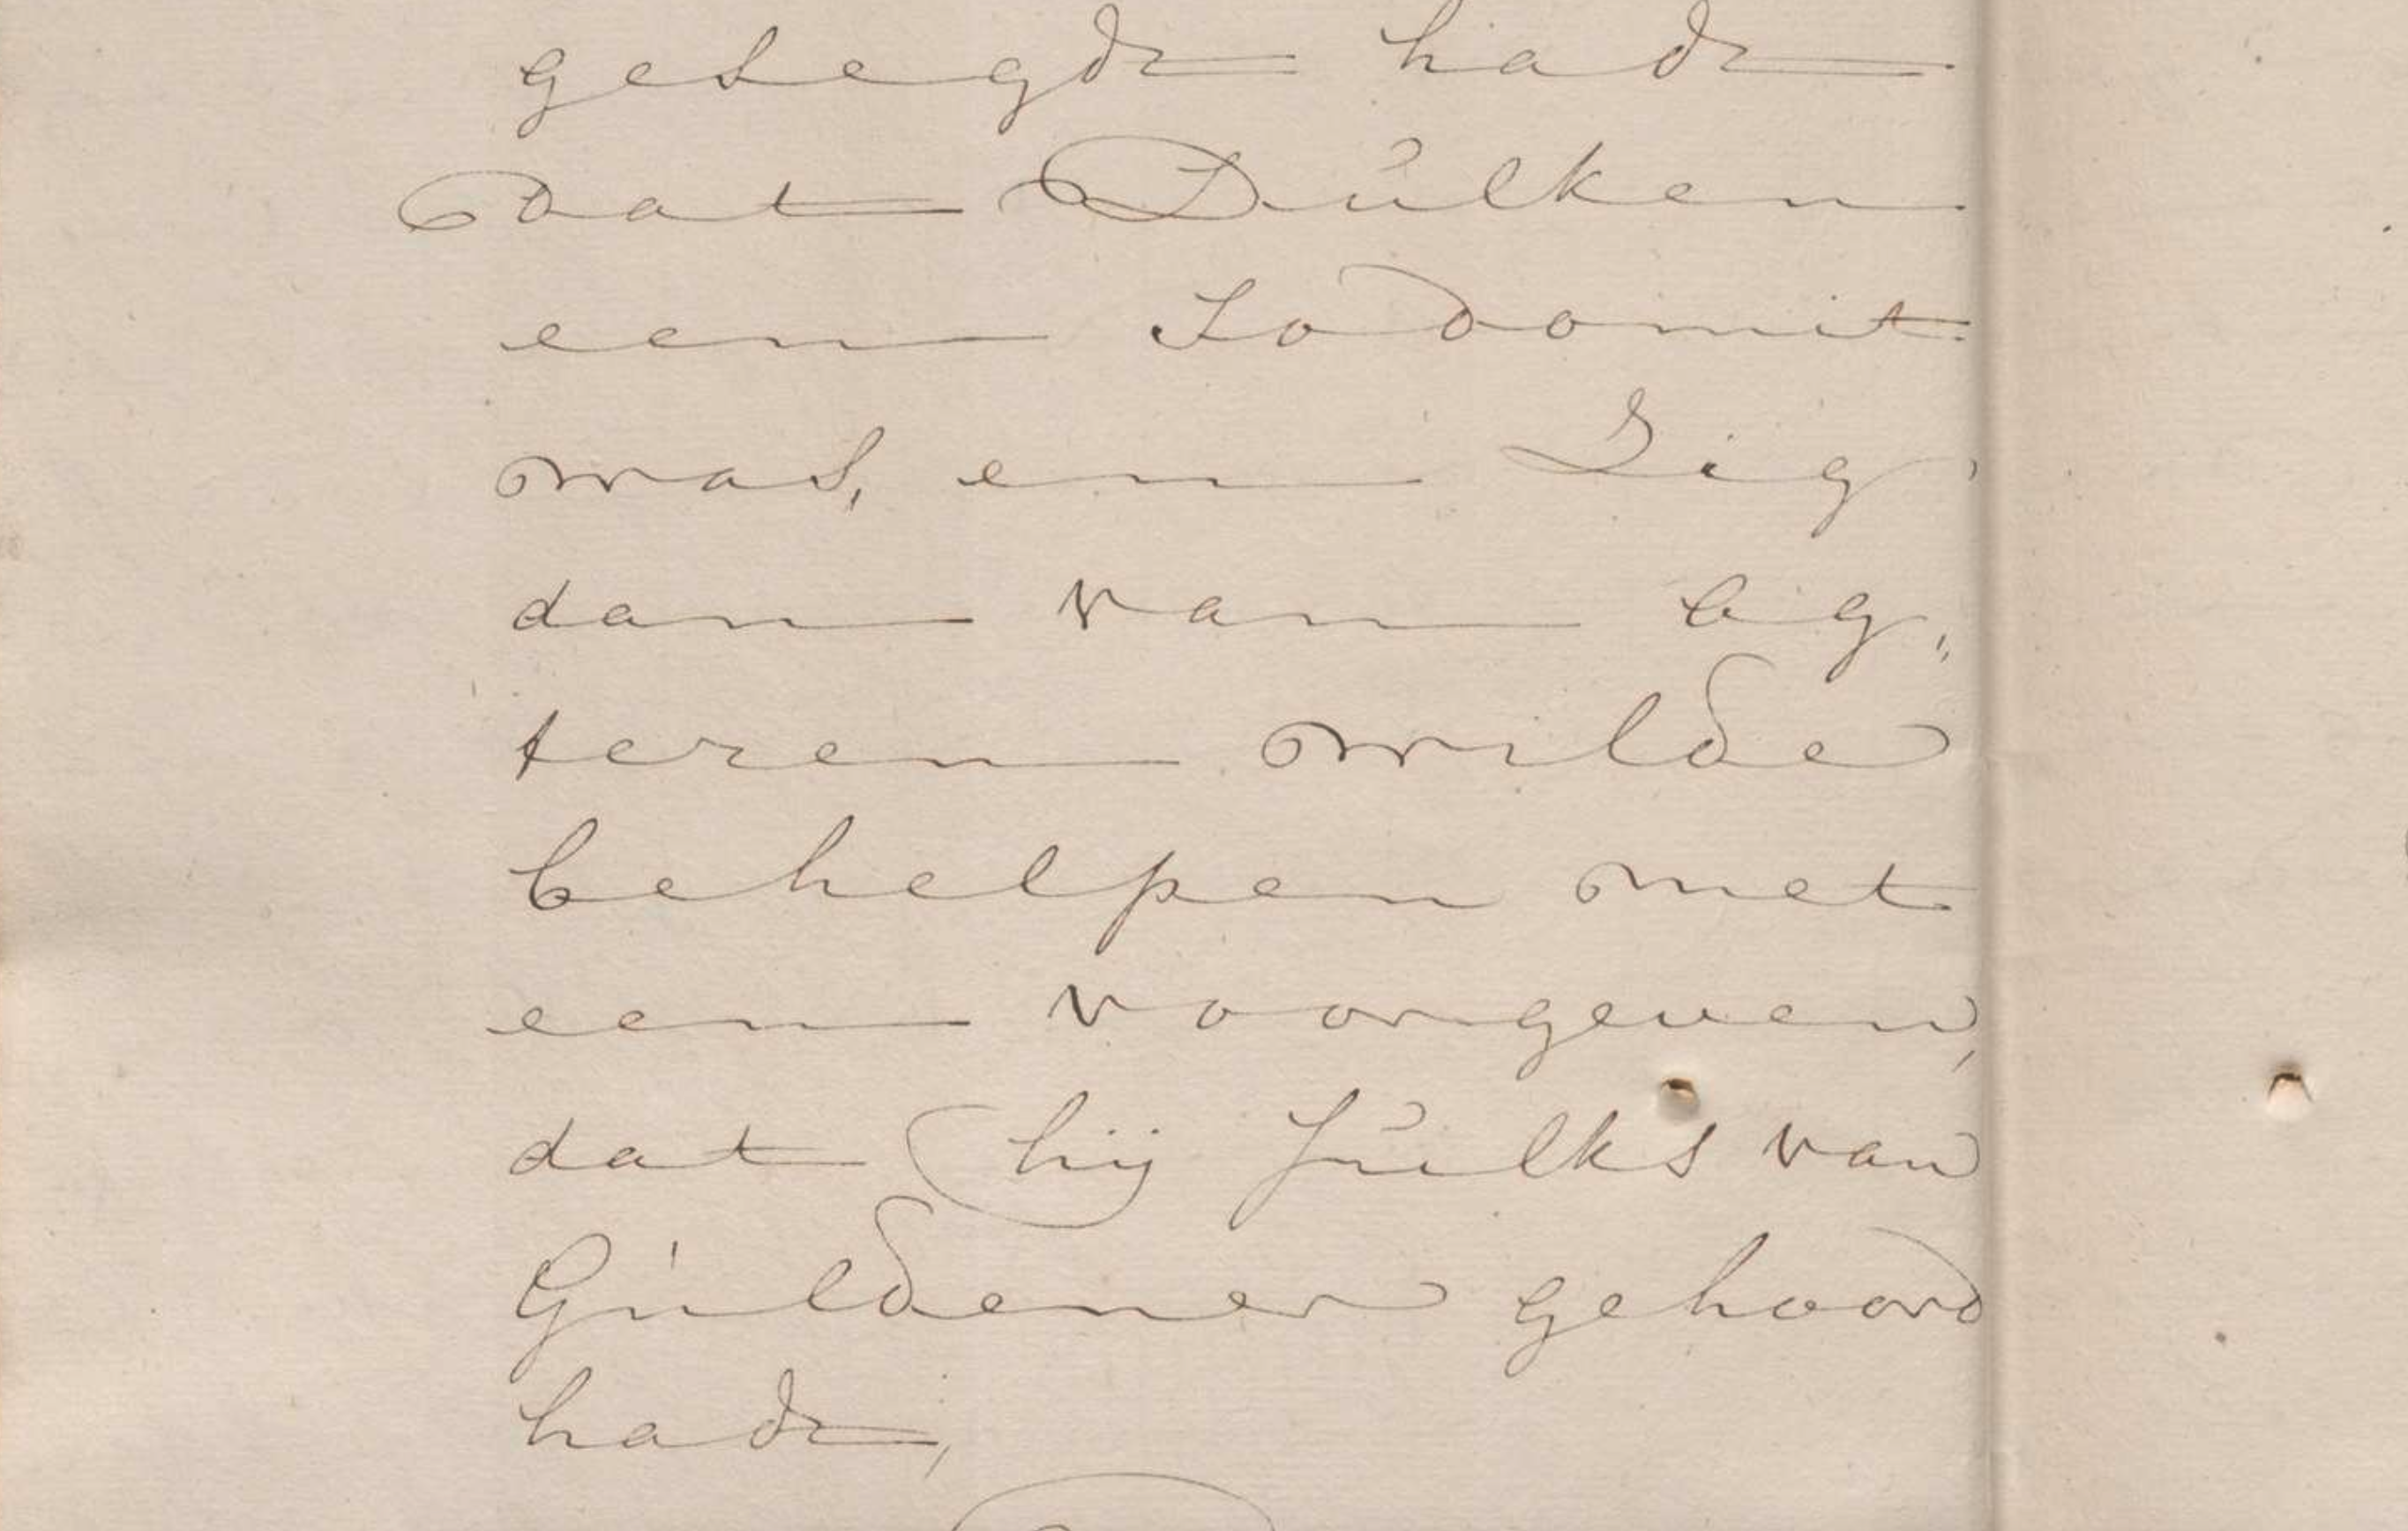 gesegdt hadt
dat Dulken
een Sodomit
was, en Zig
dan van ag,,
teren wilde
behelpen met
een voorgeven,
dat hij sulks van
Guldener gehoord
hadt,